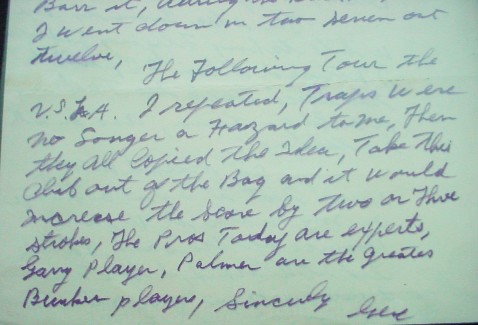 I went down in two seven out
twelve,
The Following Tour the
U.S.A. I repeated, Traps were
no Longer a Hazard to me, Then
they all Copied the Idea, Take this
Club out of the Bag and it would
increase the score by two or three
strokes, The Pros Today are experts,
Gary Player, Palmer are the greates
Bunker players, Sincerly Gene